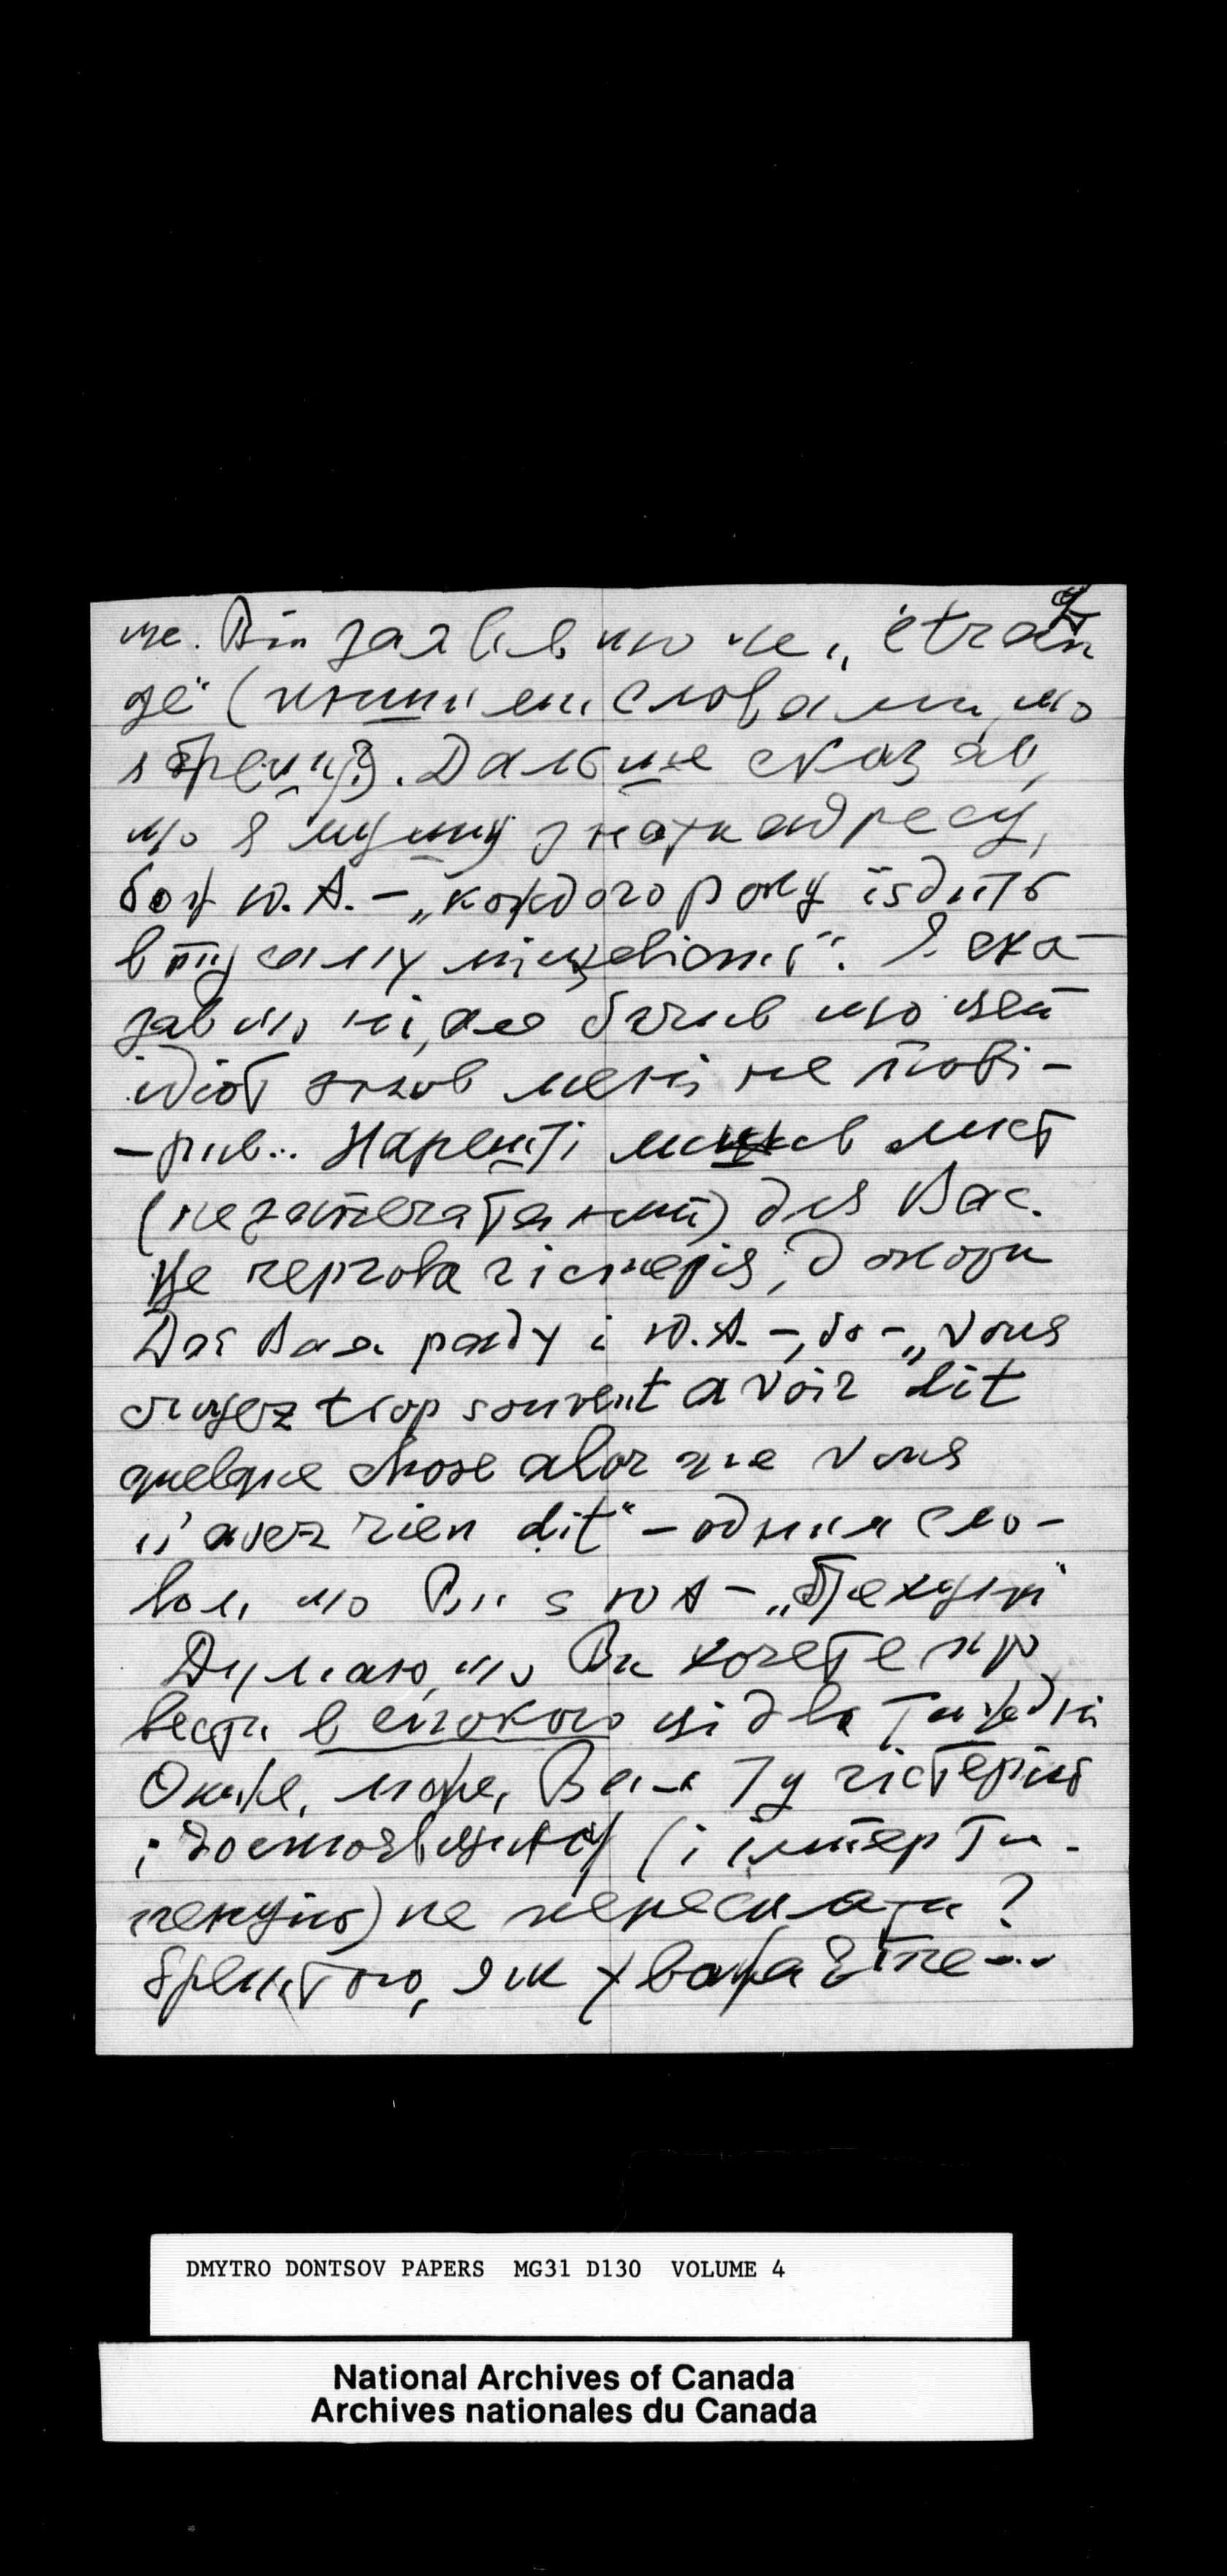 2
ше. Він заявив що це „étran
ge" (іншими словами, що
я брешу). Дальше сказав,
що я мушу знати адресу,
бо Ю. А. – „кождого року їздить
в ту саму місцевість". Я ска
зав що ні, але бачив що цей
ідіот знов мені не пові-
-рив... Нарешті лишив лист
(незапечатаний) для Вас.
Це чергова гістерія,
Дає Вам раду і Ю. А. –, бо – „vous
croyez trop souvent avoir dit
quelque chose alor que vous
n'avez rien dit" – одним сло-
вом, що Ви з Ю А –
Думаю, що Ви хочете про
вести в спокою ці два тижні
Отже, може, Вам ту гістерію
(і імпер ти-
ненцію) не пересилати?
Зрештою, як уважаєте...
DMYTRO DONTSOV PAPERS MG31 D130 VOLUME 4
National Archives of Canada
Archives nationales du Canada